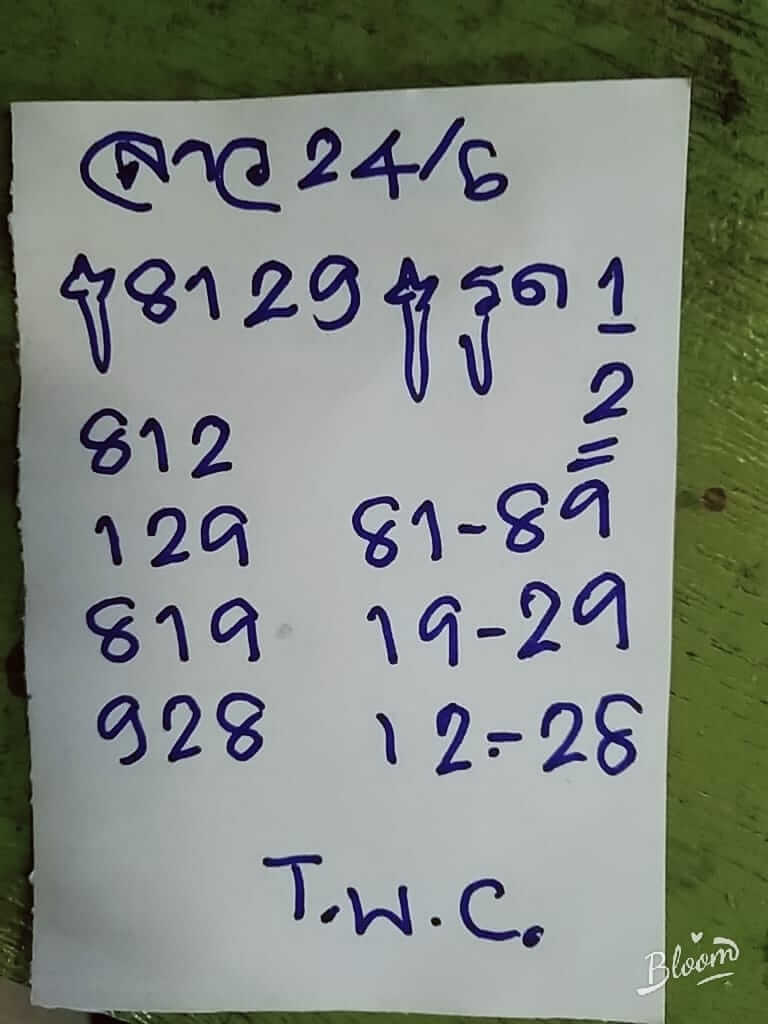 ลาว 24/6
8129 รูด 1
2
812
129 81-89
819 19-29
928 12-28
T.W.C.
Bloom